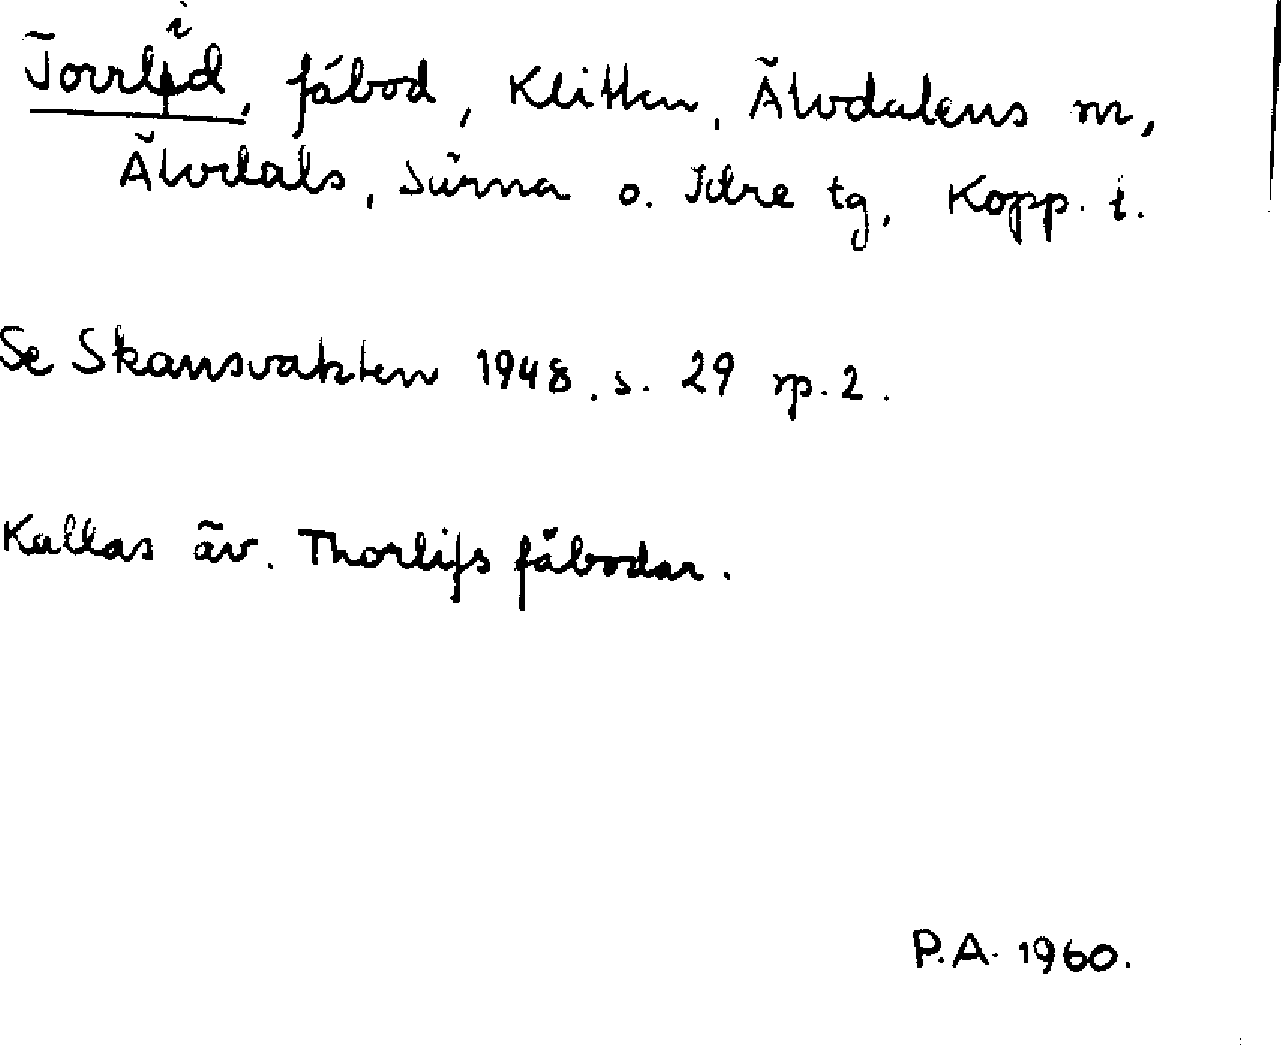 Torrlid, fäbod, Klitten, Älvdalens sn,
Älvdals, Särna o. Idre tg, Kopp. l.
Se Skansvakten 1948. s. 29 sp. 2.
Kallas äv. Thorlifs fäbodar.
P.A. 1960.